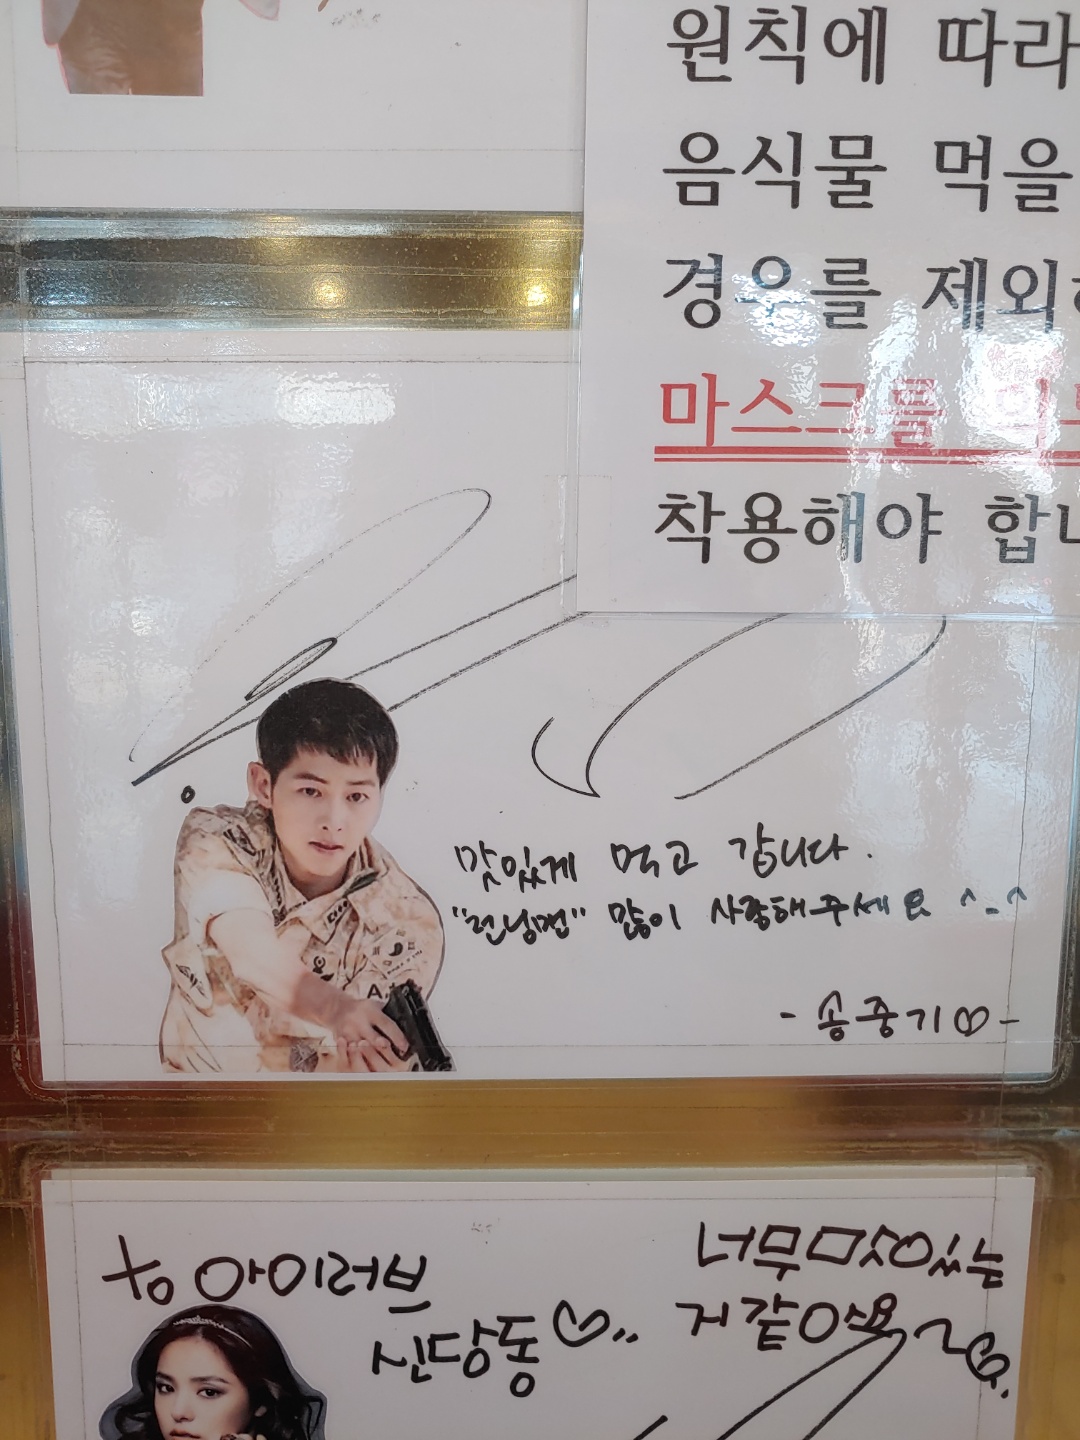 원칙에 따라
음식물 먹을
경우를 제외
마스크를
착용해야 합
맛있게 먹고 갑니다.
"런닝맨" 많이 사랑해주세요 ^-^
- 송중기♡-
to 아이러브
신당동♡..
너무 맛있는
거 같아요~♡.